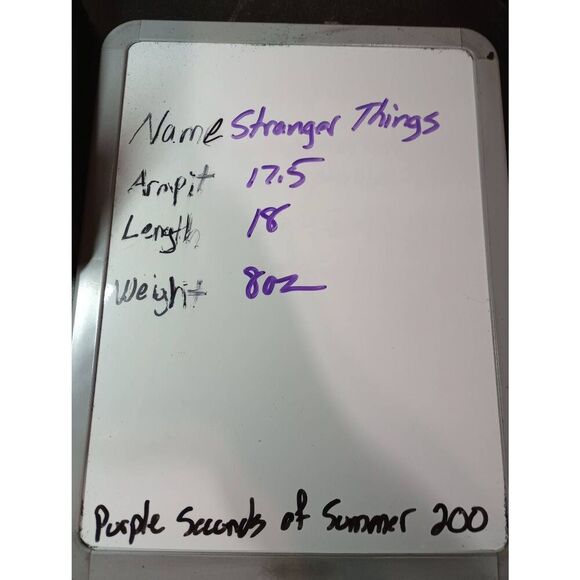 Name Stranger Things
Armpit 17.5
Length 18
Weight 8oz
Purple Seconds of Summer 200